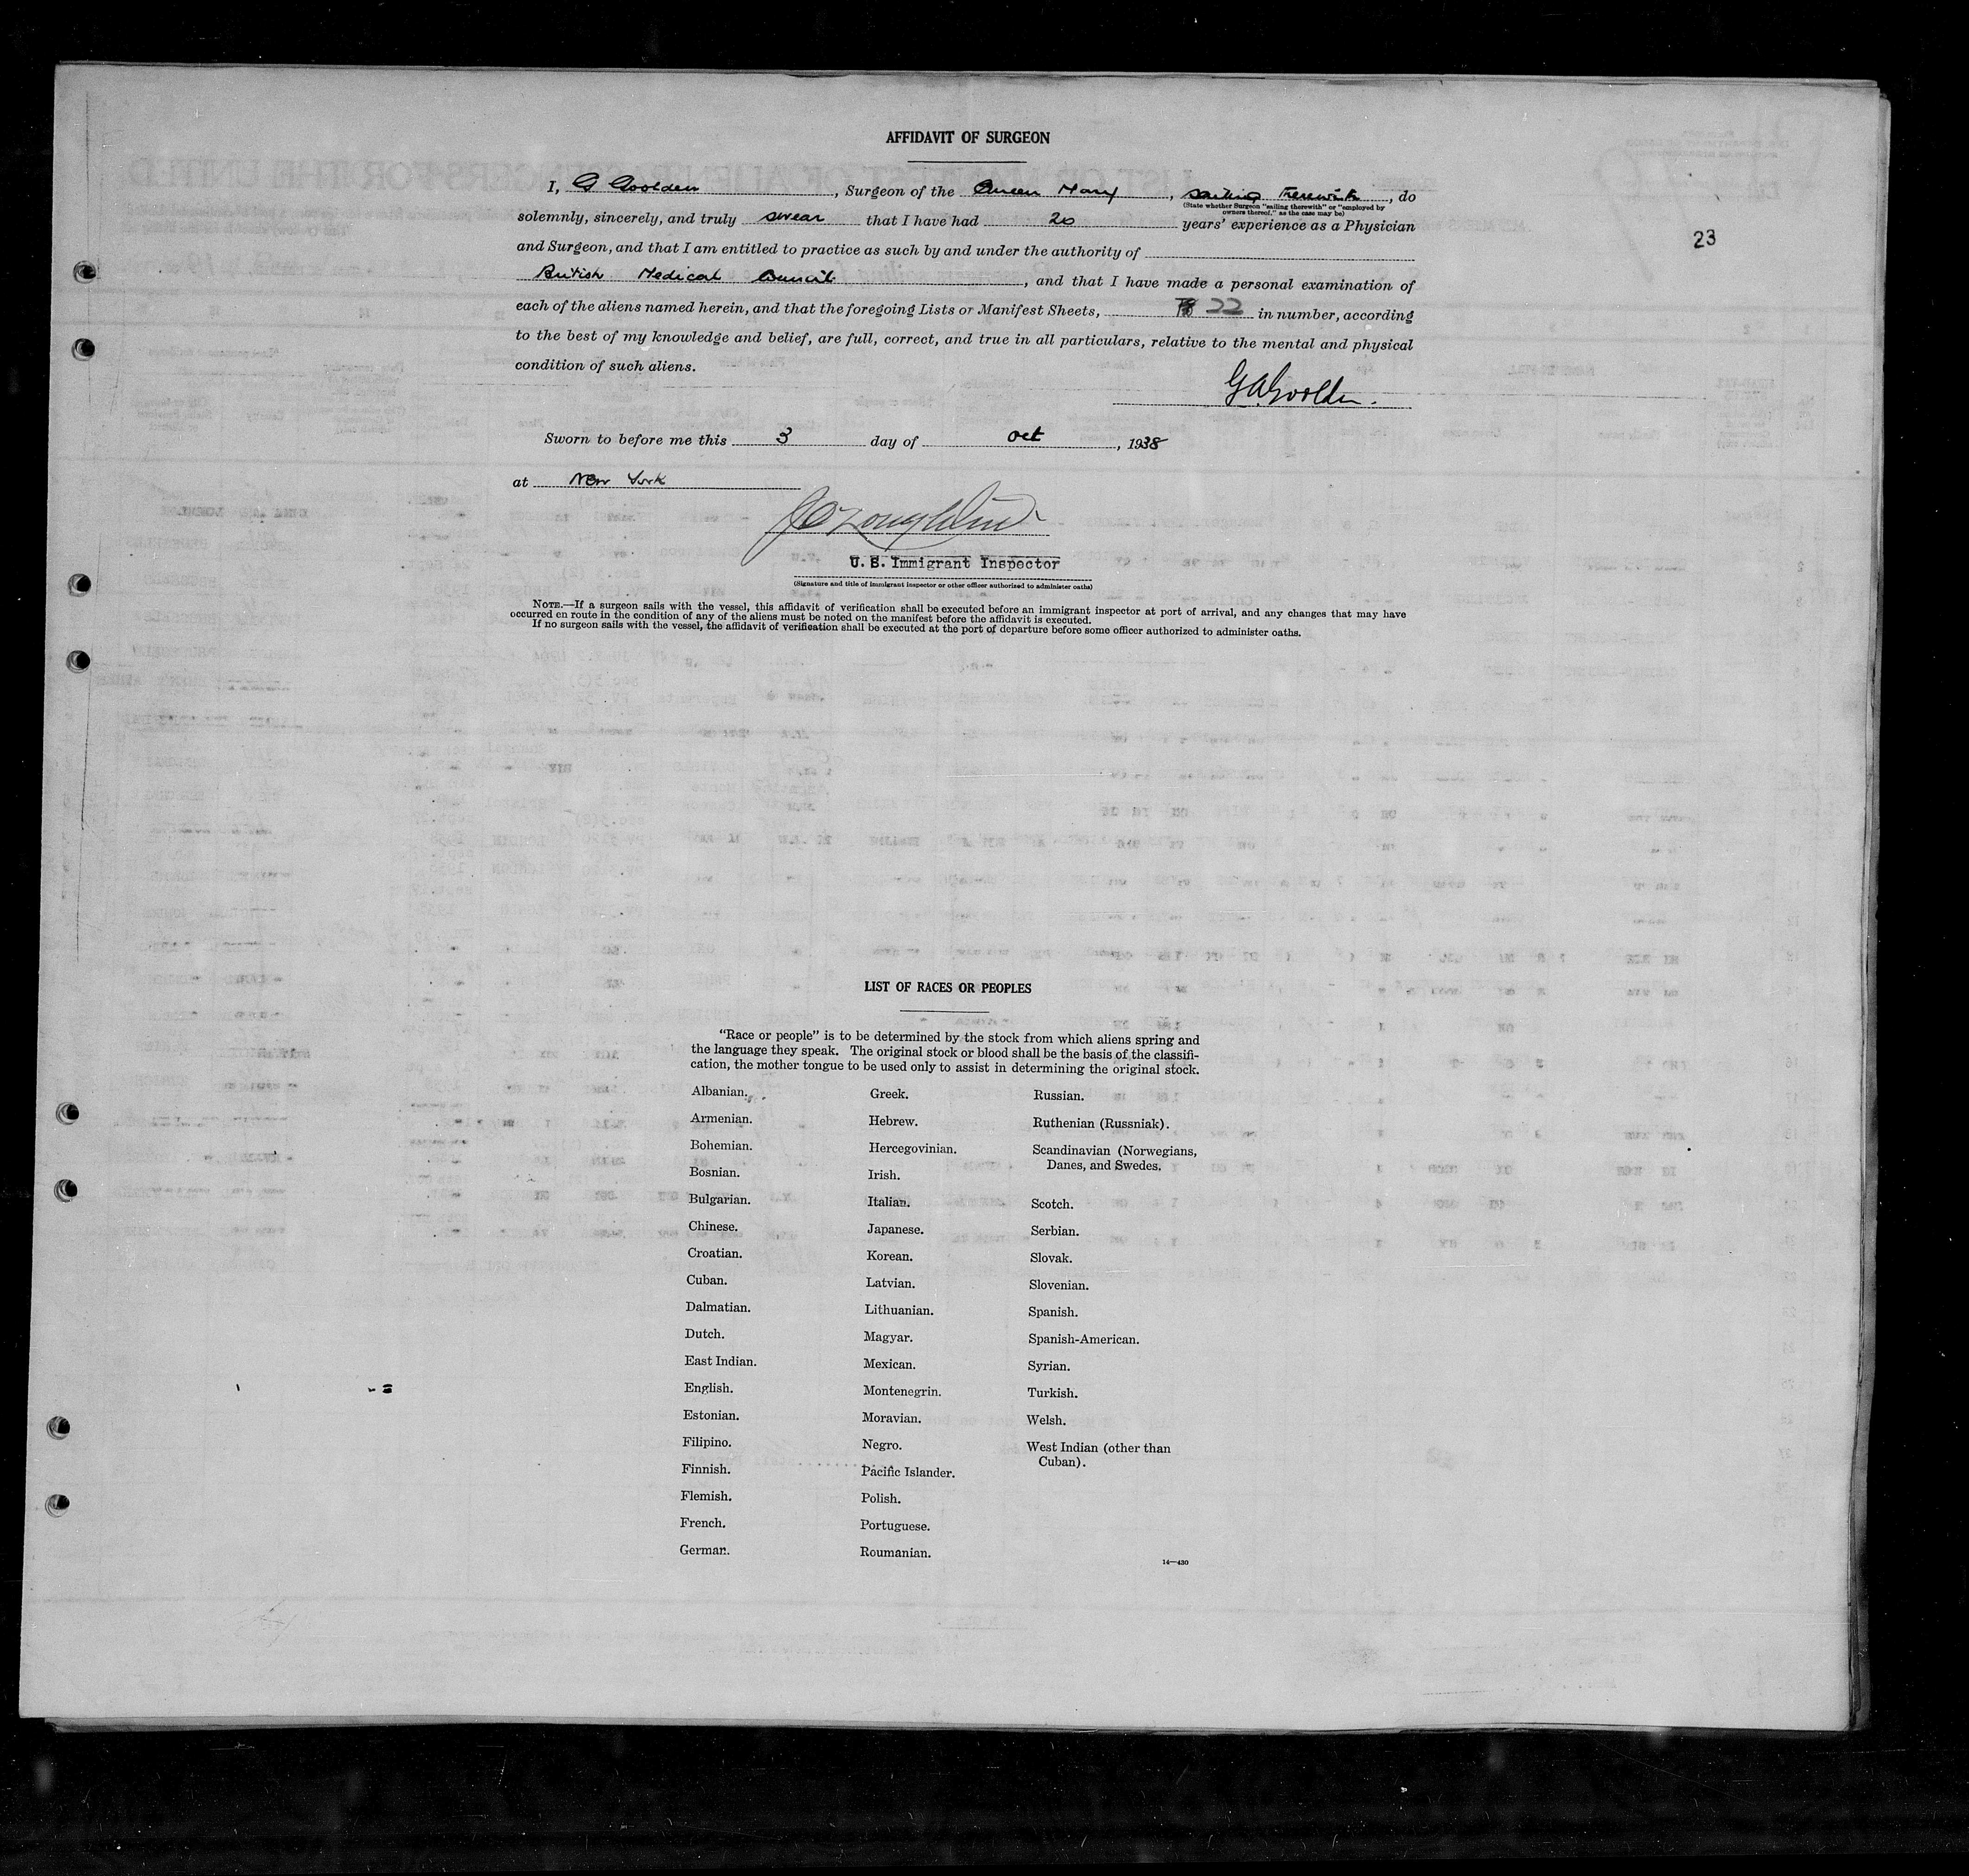 AFFIDAVIT OF SURGEON
I, G Goolden, Surgeon of the Queen Mary, sailing Therewith, do
(State whether Surgeon "sailing therewith" or "employed by
owners thereof," as the case may be)
solemnly, sincerely, and truly swear that I have had 20 years' experience as a Physician
23
and Surgeon, and that I am entitled to practice as such by and under the authority of
British Medical Council, and that I have made a personal examination of
each of the aliens named herein, and that the foregoing Lists or Manifest Sheets, 22 in number, according
to the best of my knowledge and belief, are full, correct, and true in all particulars, relative to the mental and physical
condition of such aliens.
G A Goolden.
Sworn to before me this 3 day of Oct, 1938
at New York
U. S. Immigrant Inspector
(Signature and title of immigrant inspector or other officer authorized to administer oaths)
NOTE.—If a surgeon sails with the vessel, this affidavit of verification shall be executed before an immigrant inspector at port of arrival, and any changes that may have
occurred en route in the condition of any of the aliens must be noted on the manifest before the affidavit is executed.
If no surgeon sails with the vessel, the affidavit of verification shall be executed at the port of departure before some officer authorized to administer oaths.
LIST OF RACES OR PEOPLES
"Race or people" is to be determined by the stock from which aliens spring and
the language they speak. The original stock or blood shall be the basis of the classifi-
cation, the mother tongue to be used only to assist in determining the original stock.
Albanian.
Armenian.
Bohemian.
Bosnian.
Bulgarian.
Chinese.
Croatian.
Cuban.
Dalmatian.
Dutch.
East Indian.
English.
Estonian.
Filipino.
Finnish.
Flemish.
French.
German.
Greek.
Hebrew.
Hercegovinian.
Irish.
Italian.
Japanese.
Korean.
Latvian.
Lithuanian.
Magyar.
Mexican.
Montenegrin.
Moravian.
Negro.
Pacific Islander.
Polish.
Portuguese.
Roumanian.
Russian.
Ruthenian (Russniak).
Scandinavian (Norwegians,
Danes, and Swedes.
Scotch.
Serbian.
Slovak.
Slovenian.
Spanish.
Spanish-American.
Syrian.
Turkish.
Welsh.
West Indian (other than
Cuban).
14—430